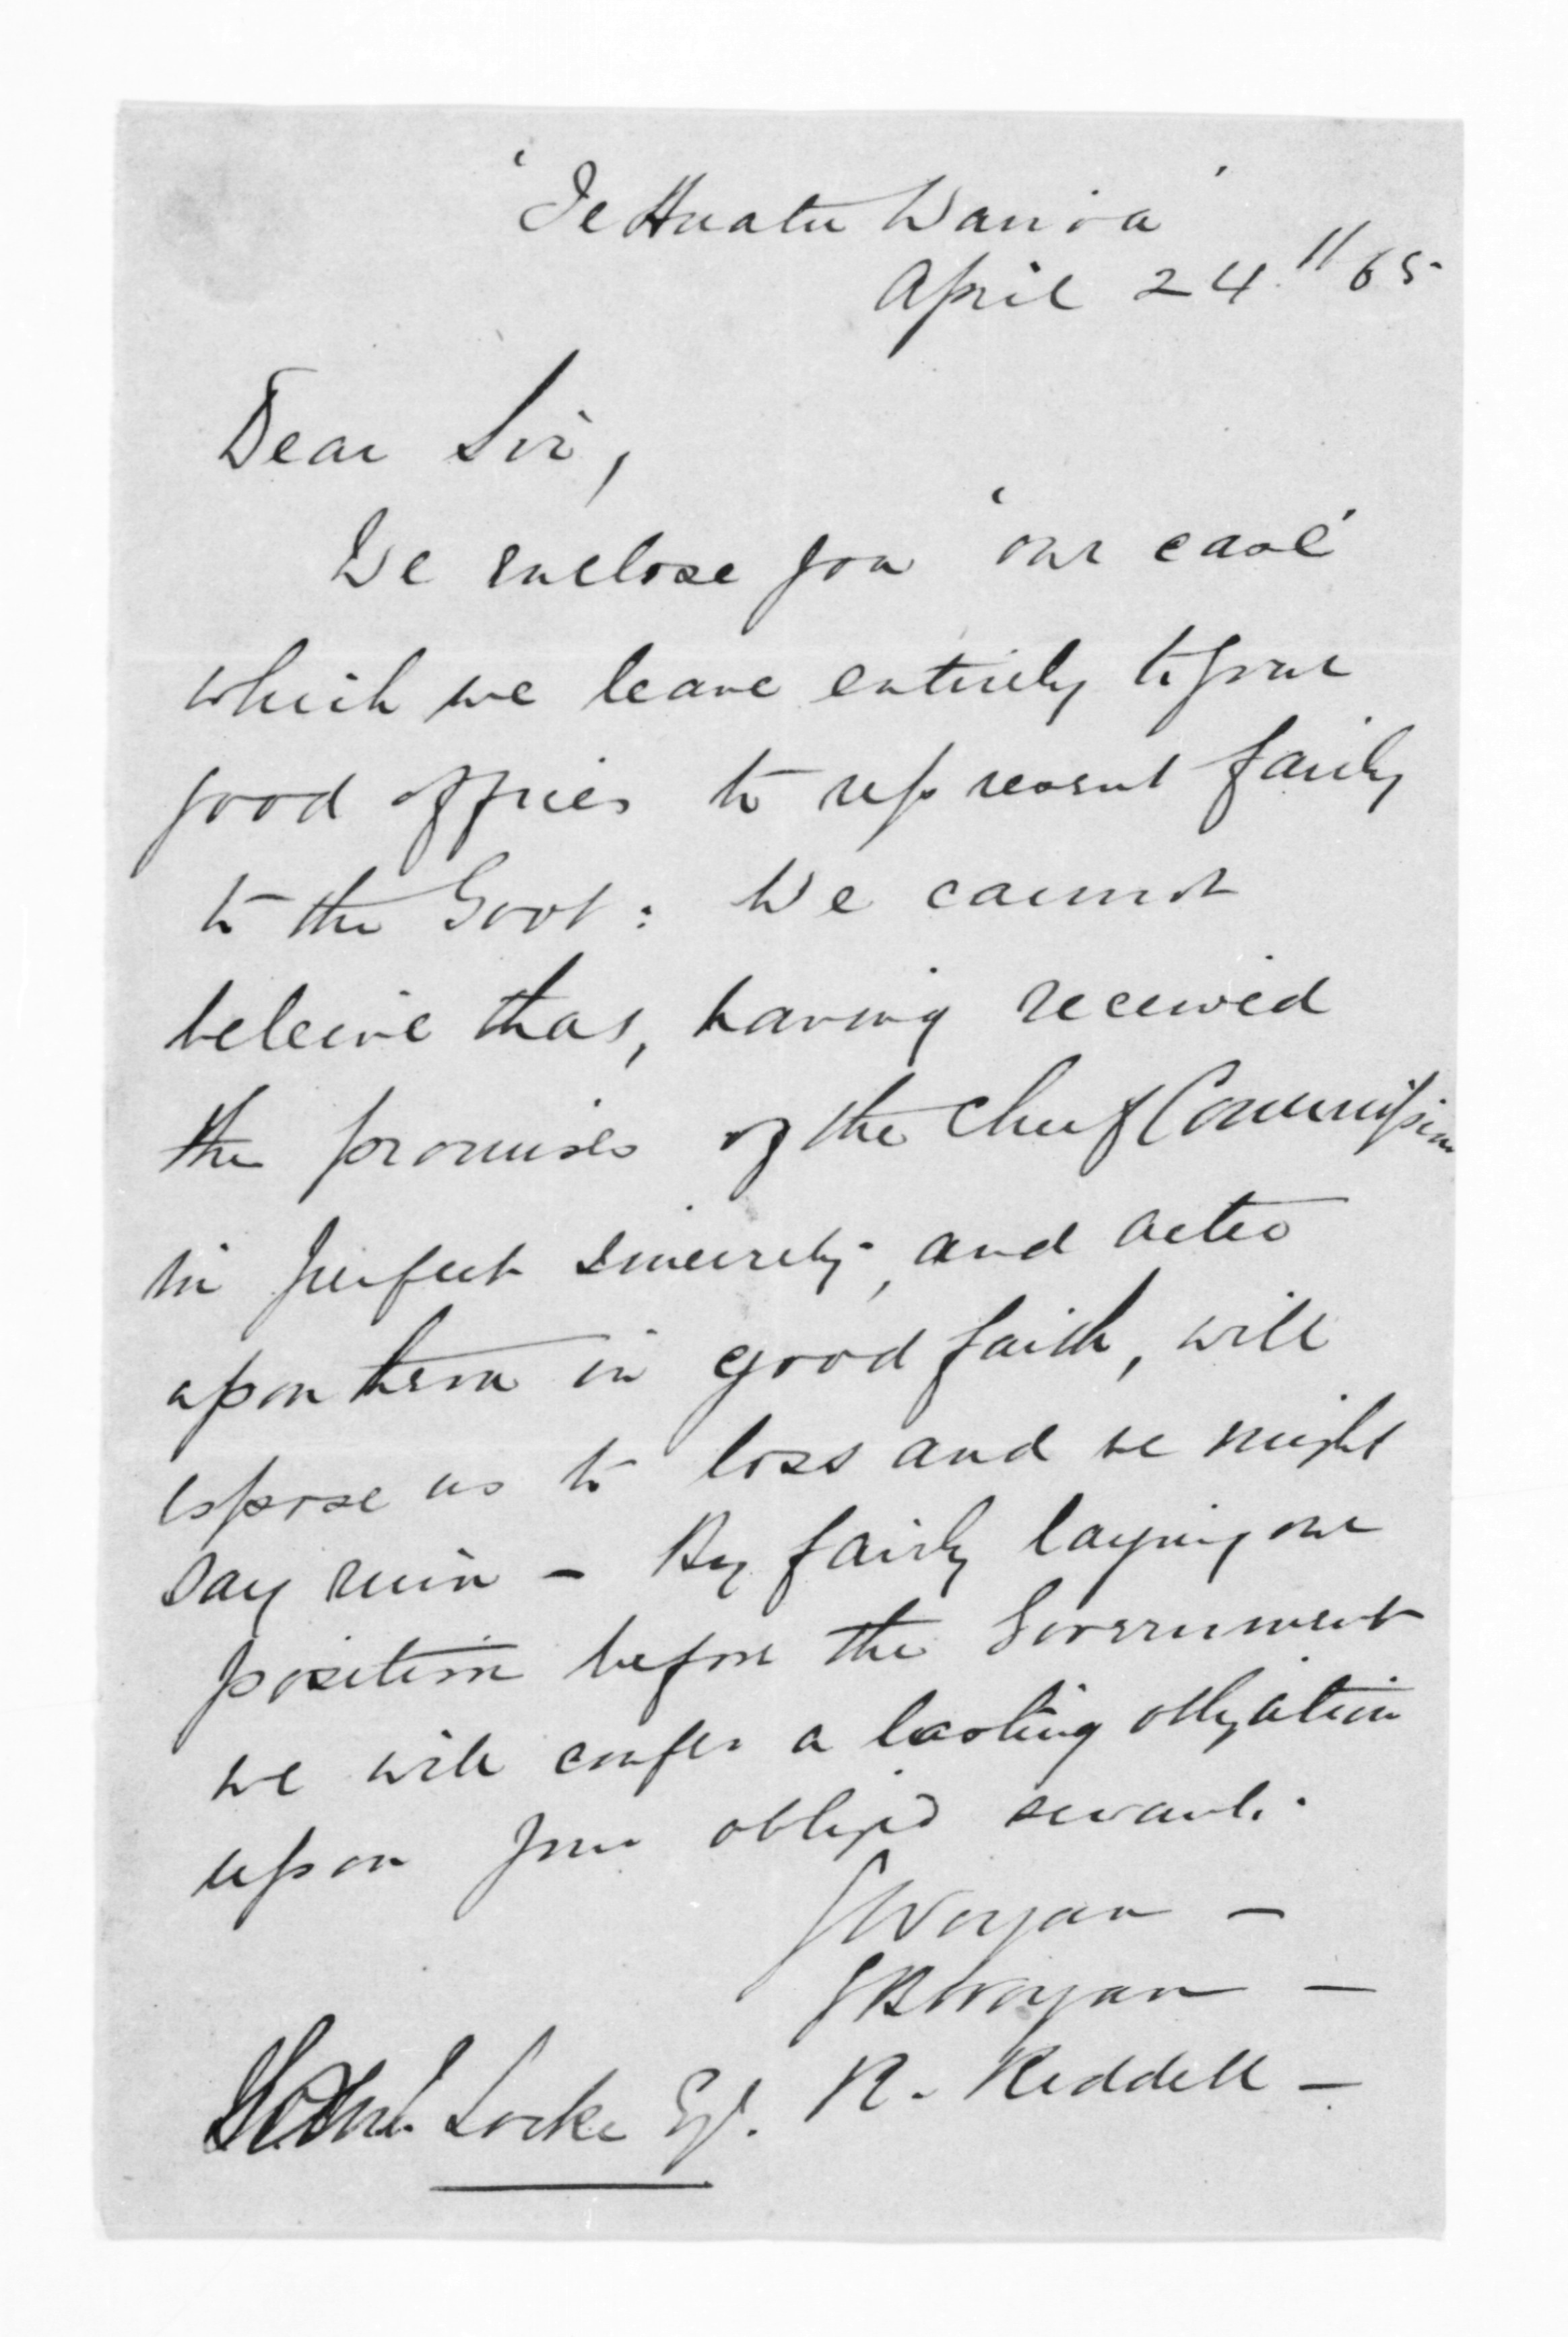 'Te Huatu Wairoa'
April 24.th 65
Dear Sir,
We enclose you 'our case'
which we leave entirely to your
good offices to represent fairly
to the Govt: We cannot
beleive that, having received
the promises of the Chief Commission
in perfect sincerity, and acted
upon them in good faith, will
expose us to loss and we might
say ruin - By fairly laying our
position before the Government
we will confer a lasting obligation
upon your obliged servants.
J Worgan -
J B Worgan -
R. Riddell -
Locke Esq.